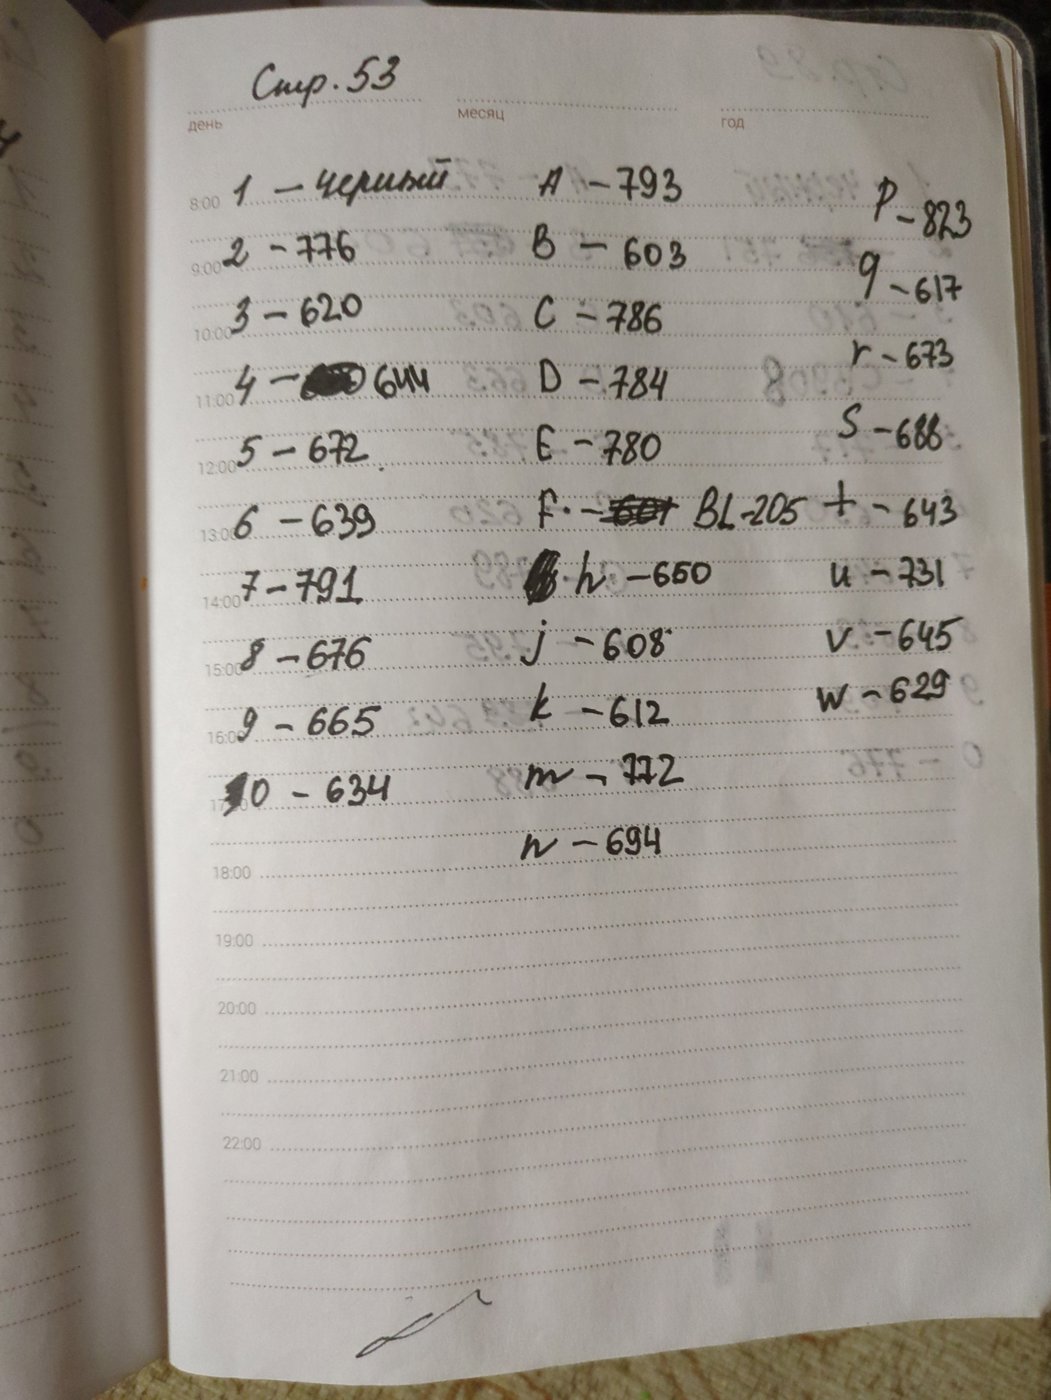 Стр. 53
день месяц год
8:00 1 - черный
9:00 2 - 776
10:00 3 - 620
11:00 4 - 644
12:00 5 - 672
13:00 6 - 639
14:00 7 - 791
15:00 8 - 676
16:00 9 - 665
10 - 634
18:00
19:00
20:00
21:00
22:00
A - 793
B - 603
C - 786
D - 784
E - 780
F - 601 BL-205
h - 650
j - 608
k - 612
m - 772
n - 694
P - 823
q - 617
r - 673
S - 688
t - 643
u - 731
v - 645
w - 629